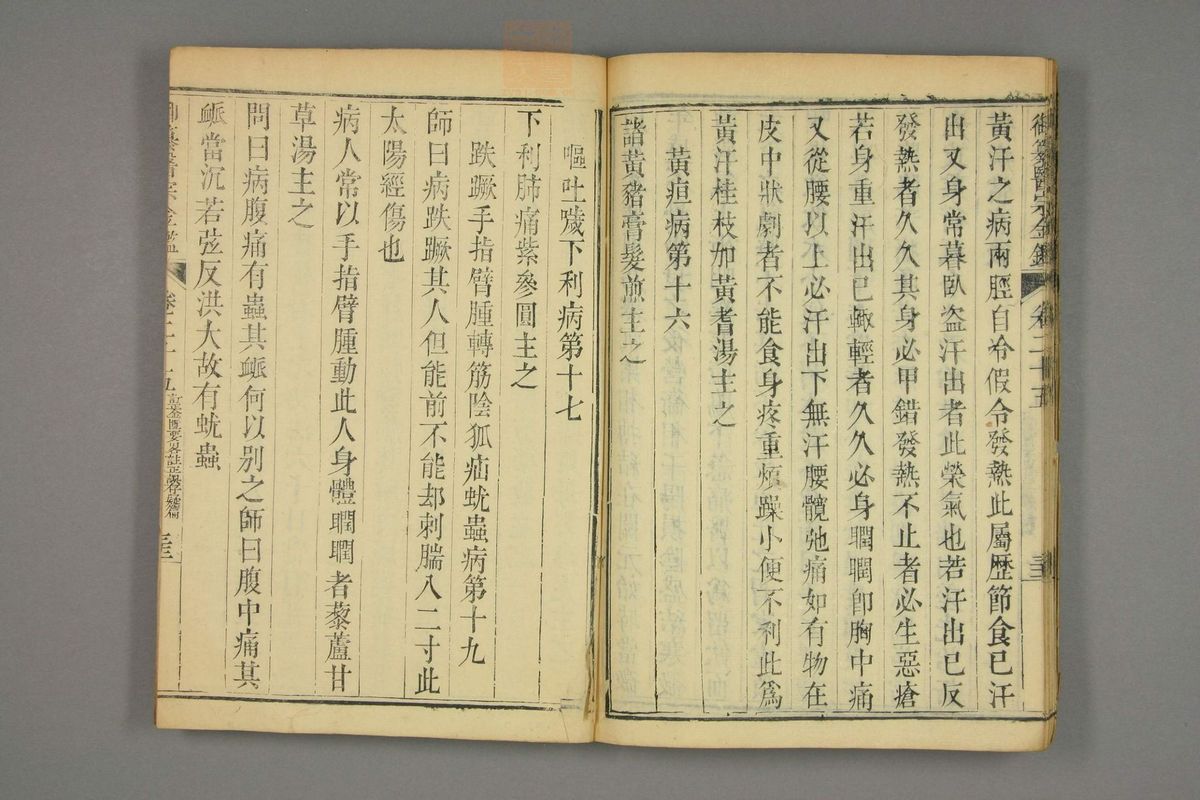 御纂醫宗金鑑 卷二十五 三三
黃汗之病兩脛自冷假令發熱此屬歷節食已汗
出又身常暮臥盜汗出者此榮氣也若汗出已反
發熱者久久其身必甲錯發熱不止者必生惡瘡
若身重汗出已輙輕者久久必身瞤瞤卽胸中痛
又從腰以上必汗出下無汗腰髖弛痛如有物在
皮中狀劇者不能食身疼重煩躁小便不利此爲
黃汗桂枝加黃耆湯主之
黃疸病第十六
諸黃豬膏髮煎主之
嘔吐噦下利病第十七
下利肺痛紫參圓主之
趺蹶手指臂腫轉筋陰狐疝蚘蟲病第十九
師曰病趺蹶其人但能前不能却刺腨入二寸此
太陽經傷也
病人常以手指臂腫動此人身體瞤瞤者藜蘆甘
草湯主之
問曰病腹痛有蟲其䘑何以別之師曰腹中痛其
䘑當沉若弦反洪大故有蚘蟲
御纂醫宗金鑑 卷二十五 訂正金匱要畧註正誤存疑篇 三三